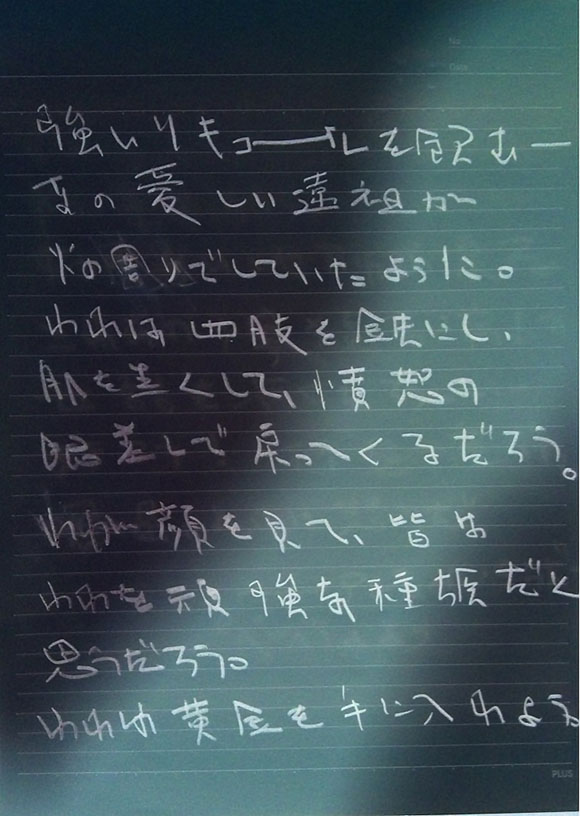 No.
Date
強いリキュールを飲む―
の愛しい遠祖が
火の周りでしていたように。
われは四肢を鉄にし、
肌を黒くして、憤怒の
眼差しで戻ってくるだろう。
わが顔を見て、皆は
われを頑強な種族だと
思うだろう。
われは黄金を手に入れよう。
PLUS